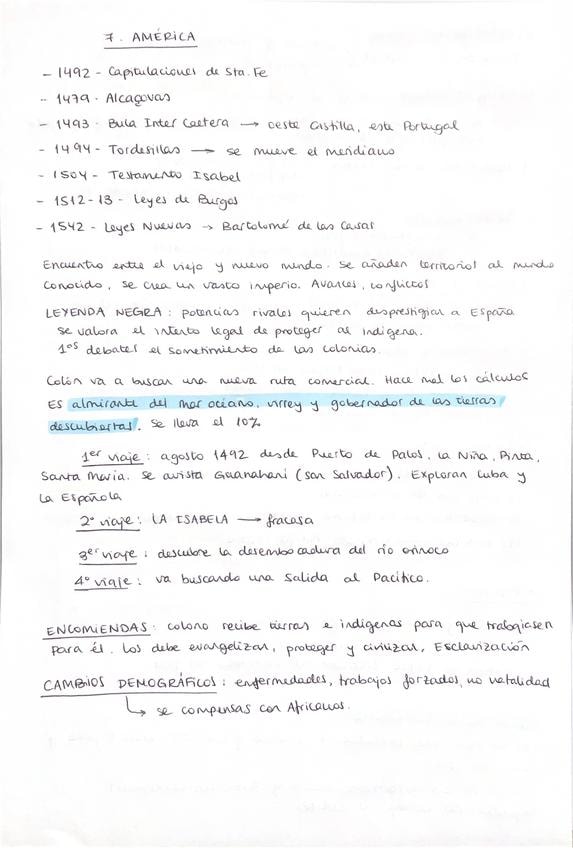 7. AMÉRICA
- 1492 - Capitulaciones de Sta. Fe
- 1479 - Alcaçovas
- 1493 - Bula Inter Caetera → oeste Castilla, este Portugal
- 1494 - Tordesillas → se mueve el meridiano
- 1504 - Testamento Isabel
- 1512-13 - Leyes de Burgos
- 1542 - Leyes Nuevas → Bartolomé de las Casas
Encuentro entre el viejo y nuevo mundo. Se añaden territorios al mundo
conocido, se crea un vasto imperio. Avances, conflictos
LEYENDA NEGRA: potencias rivales quieren desprestigiar a España
se valora el intento legal de proteger al indígena.
1ºs debates el sometimiento de las colonias.
Colón va a buscar una nueva ruta comercial. Hace mal los cálculos
ES almirante del mar océano, virrey y gobernador de las tierras
descubiertas. Se lleva el 10%
1er viaje: agosto 1492 desde Puerto de Palos, la Niña, Pinta,
Santa María. Se avista Guanahani (San Salvador). Exploran Cuba y
la Española
2º viaje: LA ISABELA → fracasa
3er viaje: descubre la desembocadura del río orinoco
4º viaje: va buscando una salida al Pacífico.
ENCOMIENDAS: colono recibe tierras e indígenas para que trabajasen
para él. Los debe evangelizar, proteger y civilizar, Esclavización
CAMBIOS DEMOGRÁFICOS: enfermedades, trabajos forzados, no natalidad
↳ se compensas con Africanos.